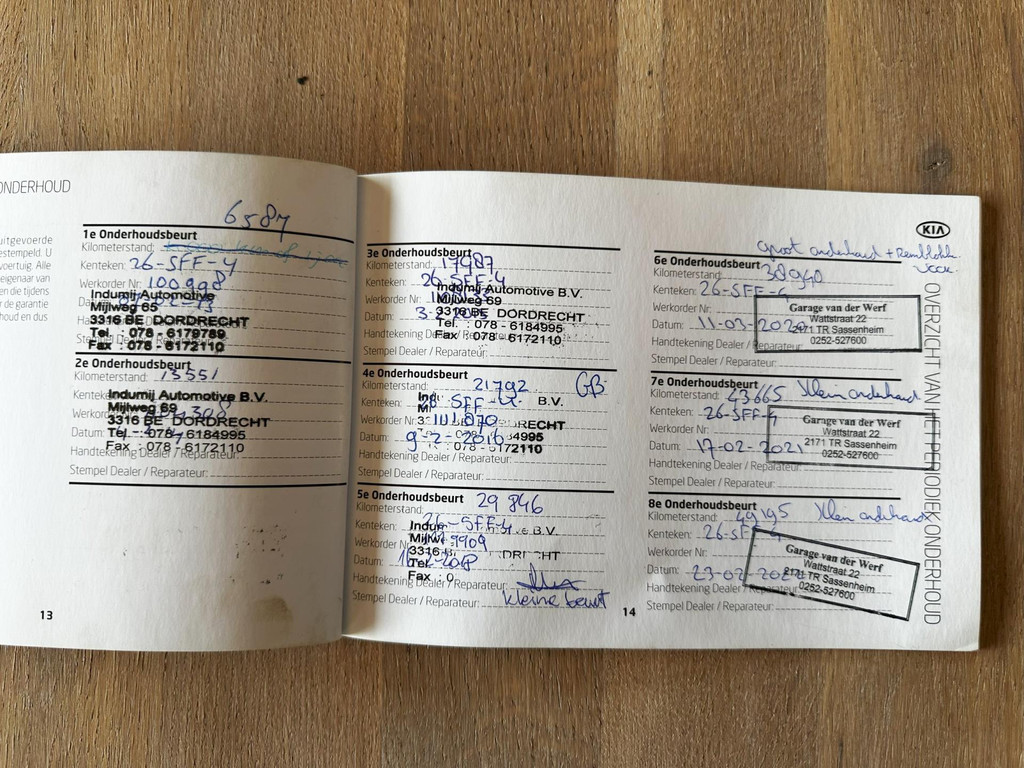 ONDERHOUD
uitgevoerde
estempeld. U
voertuig. Alle
eigenaar van
en die tijdens
r de garantie
houd en dus
6587
1e Onderhoudsbeurt
Kilometerstand:
Kenteken: 26-SFF-4
Werkorder Nr: 100998
Indumij Automotive
Mijlweg 65
3316 BE DORDRECHT
Tel. : 078 - 6179789
Fax : 078 - 6172110
2e Onderhoudsbeurt
Kilometerstand: 13551
Indumij Automotive B.V.
Mijlweg 69
3316 BE DORDRECHT
Tel. : 078 - 6184995
Fax : 078 - 6172110
Handtekening Dealer / Reparateur:
Stempel Dealer / Reparateur:
13
3e Onderhoudsbeurt
Kilometerstand: 17487
Kenteken: 26-SFF-4
Werkorder Nr:
Indumij Automotive B.V.
Mijlweg 69
3316 BE DORDRECHT
Tel. : 078 - 6184995
Fax : 078 - 6172110
Datum:
Handtekening Dealer / Reparateur:
Stempel Dealer / Reparateur:
4e Onderhoudsbeurt
Kilometerstand: 21792 GB
Kenteken: SFF B.V.
Werkorder Nr: DORDRECHT
Datum: 9-2-2016
078 - 6172110
Handtekening Dealer / Reparateur:
Stempel Dealer / Reparateur:
5e Onderhoudsbeurt
Kilometerstand: 29846
Kenteken: 26-SFF-4 B.V.
Werkorder Nr:
Datum:
Fax : 0
Handtekening Dealer / Reparateur:
Stempel Dealer / Reparateur: kleine beurt
14
KIA
OVERZICHT VAN HET PERIODIEK ONDERHOUD
Groot onderhoud + Remblokken voor.
6e Onderhoudsbeurt
Kilometerstand: 38940
Kenteken: 26-SFF-4
Werkorder Nr:
Datum: 11-03-2020
Handtekening Dealer / Reparateur:
Stempel Dealer / Reparateur:
Garage van der Werf
Wattstraat 22
2171 TR Sassenheim
0252-527600
7e Onderhoudsbeurt
Kilometerstand: 43665 Klein onderhoud
Kenteken: 26-SFF-4
Werkorder Nr:
Datum: 17-02-2021
Handtekening Dealer / Reparateur:
Stempel Dealer / Reparateur:
Garage van der Werf
Wattstraat 22
2171 TR Sassenheim
0252-527600
8e Onderhoudsbeurt
Kilometerstand: 49195 Klein onderhoud
Kenteken: 26-SFF-4
Werkorder Nr:
Datum: 23-02-
Handtekening Dealer / Reparateur:
Stempel Dealer / Reparateur:
Garage van der Werf
Wattstraat 22
2171 TR Sassenheim
0252-527600